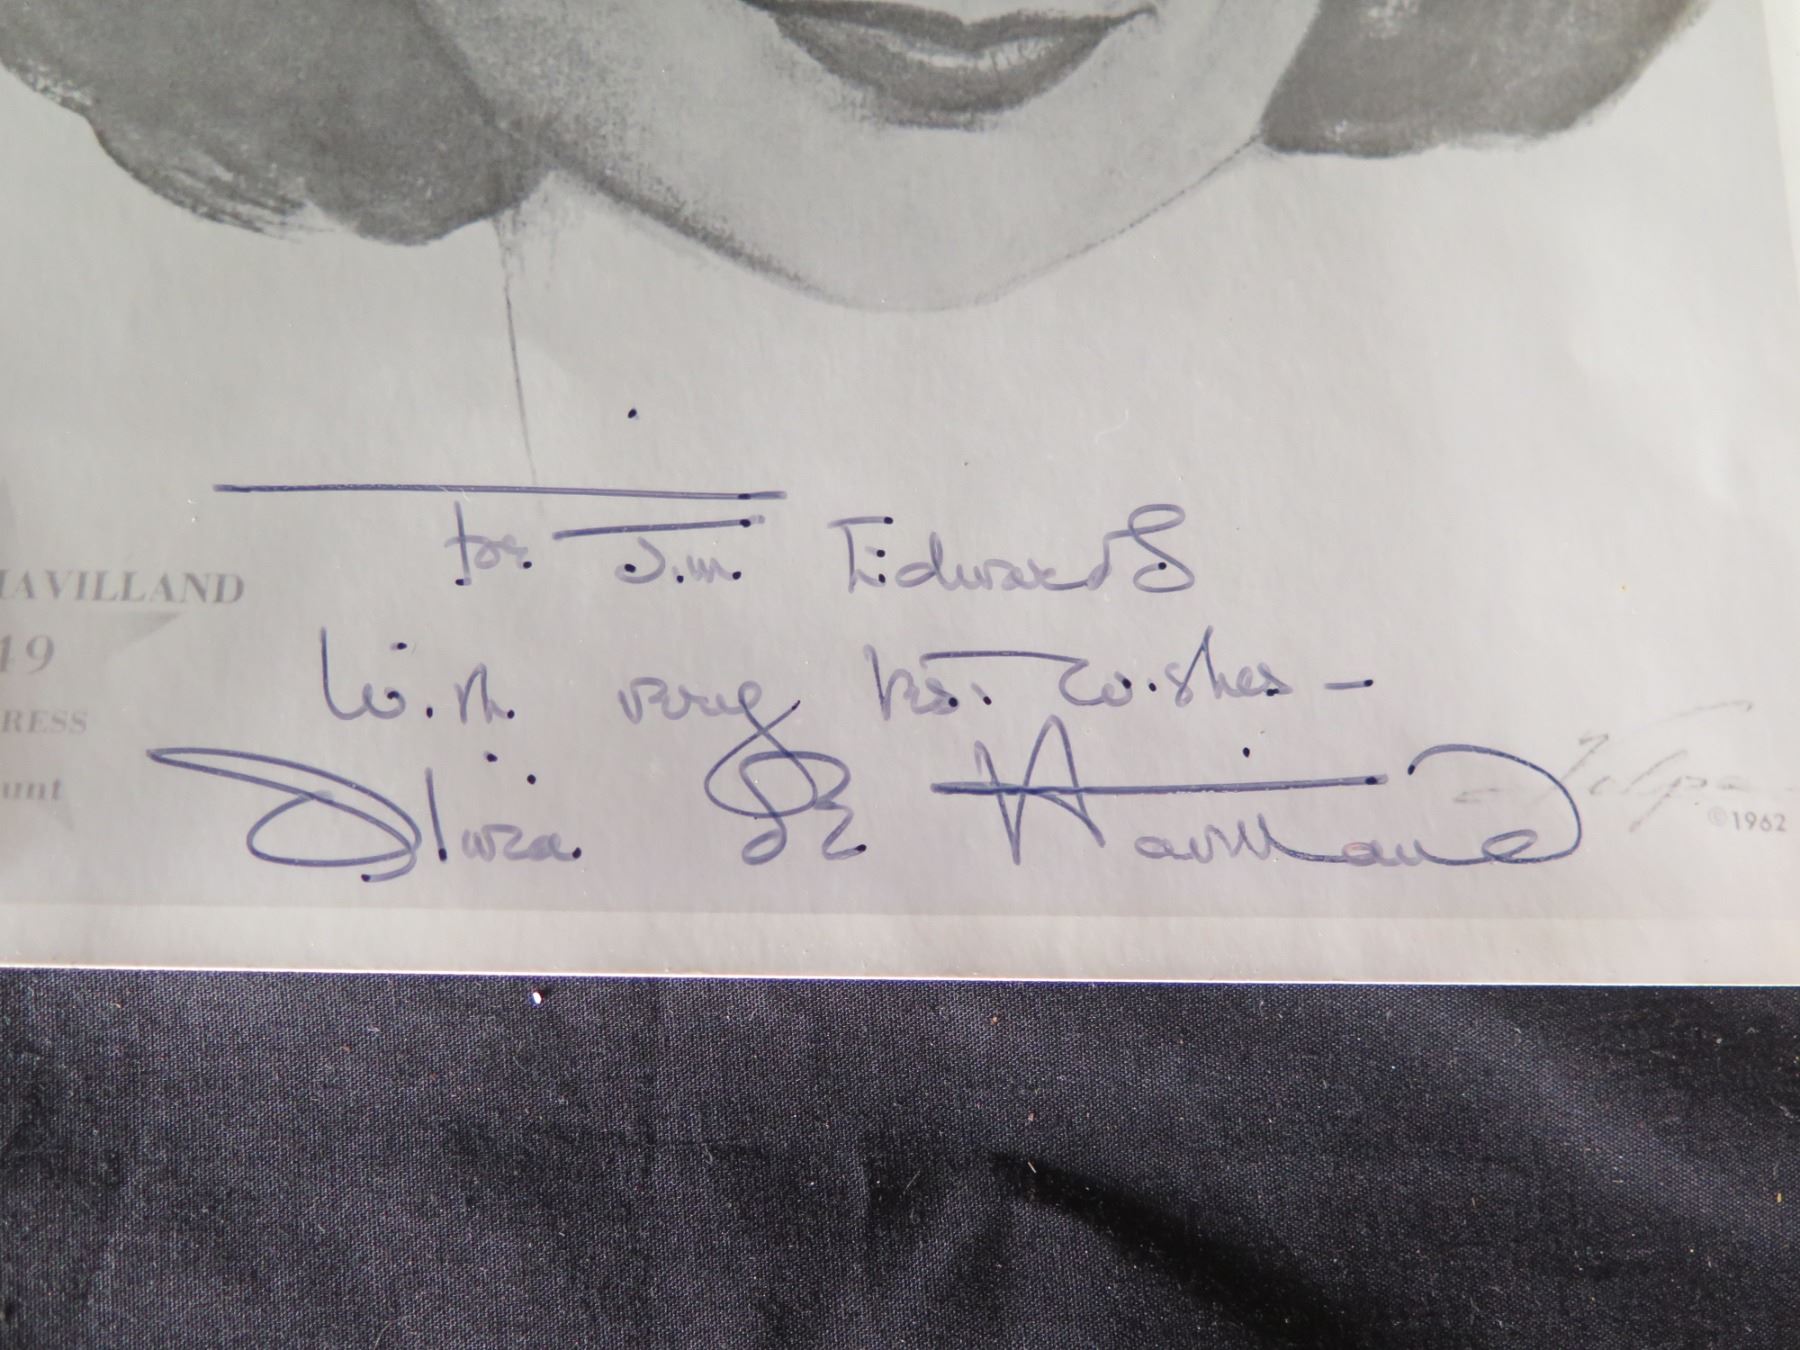 for Jim Edwards
With very best wishes –
Olivia de Havilland
HAVILLAND
19
RESS
unt
Volpe
©1962